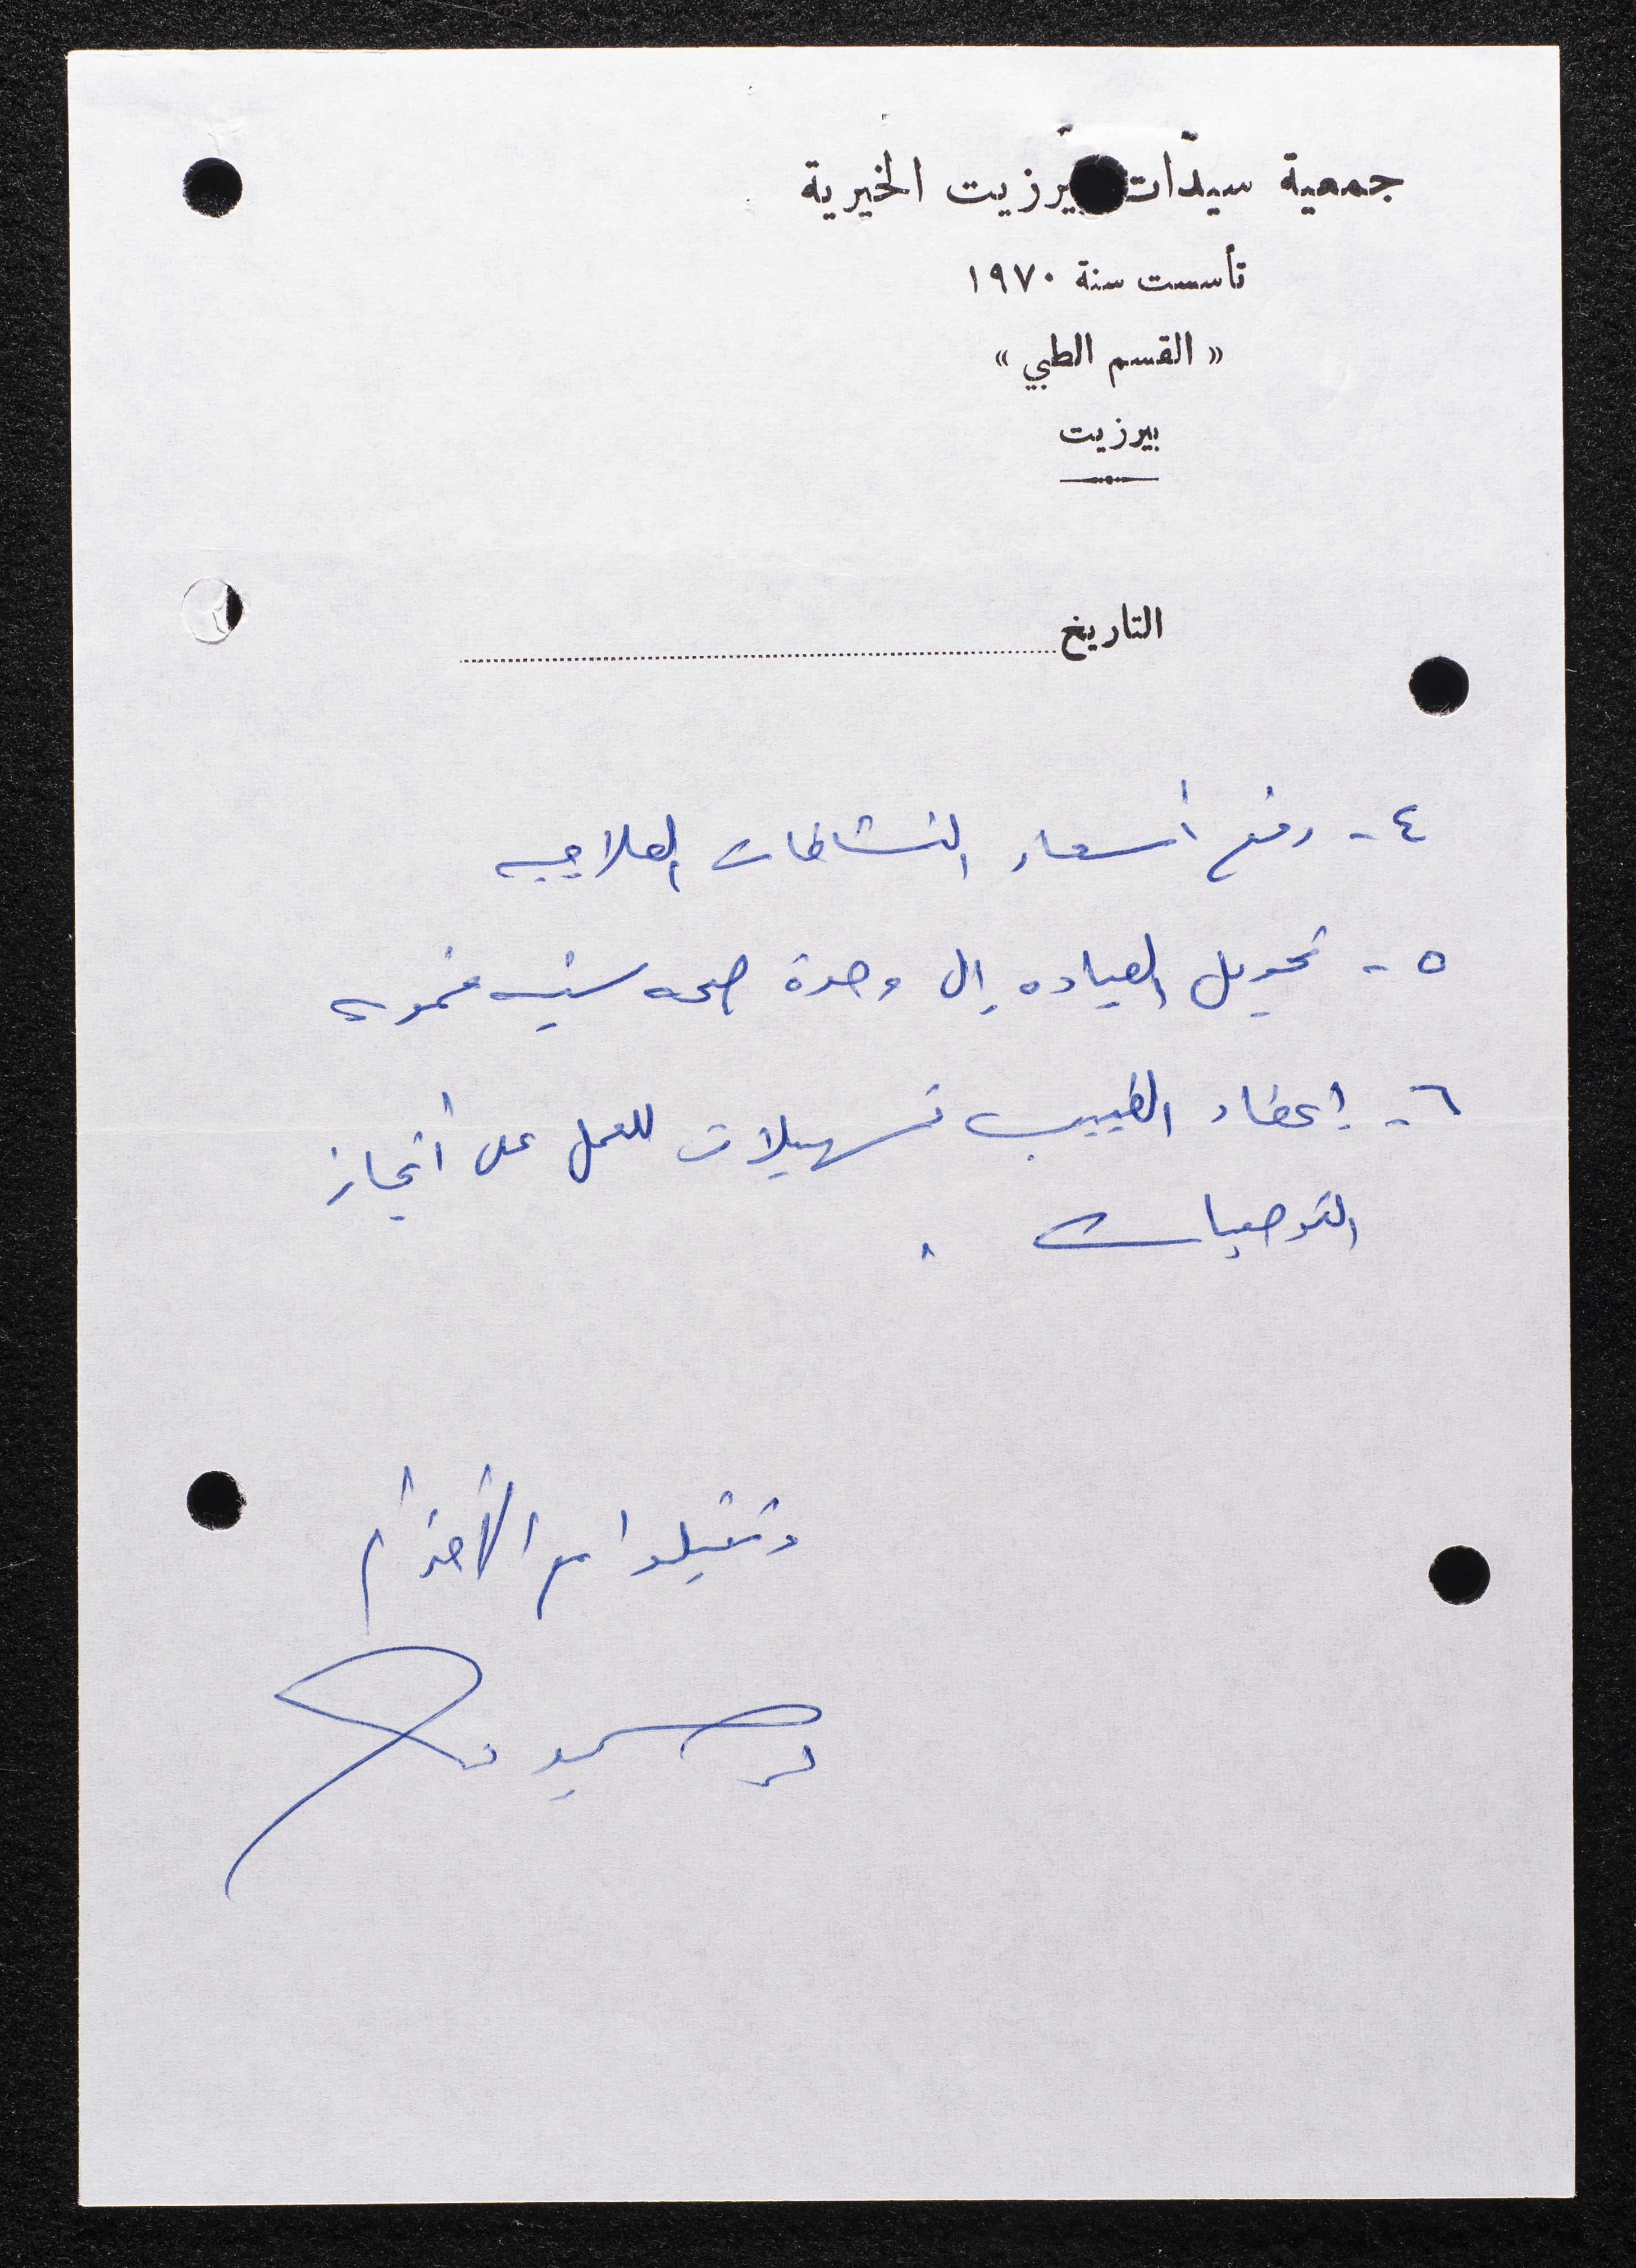 جمعية سيدّات بيرزيت الخيرية
تأسست سنة ١٩٧٠
« القسم الطبي »
بيرزيت
التاريخ
٤ - رفع أسعار النشاطات العلاجيه
٥ - تحويل العياده إلى وحدة صحه
٦ - إعطاء الطبيب تسهيلات للعمل على أنجاز
التوصيات .
وتقبلوا الأحترام